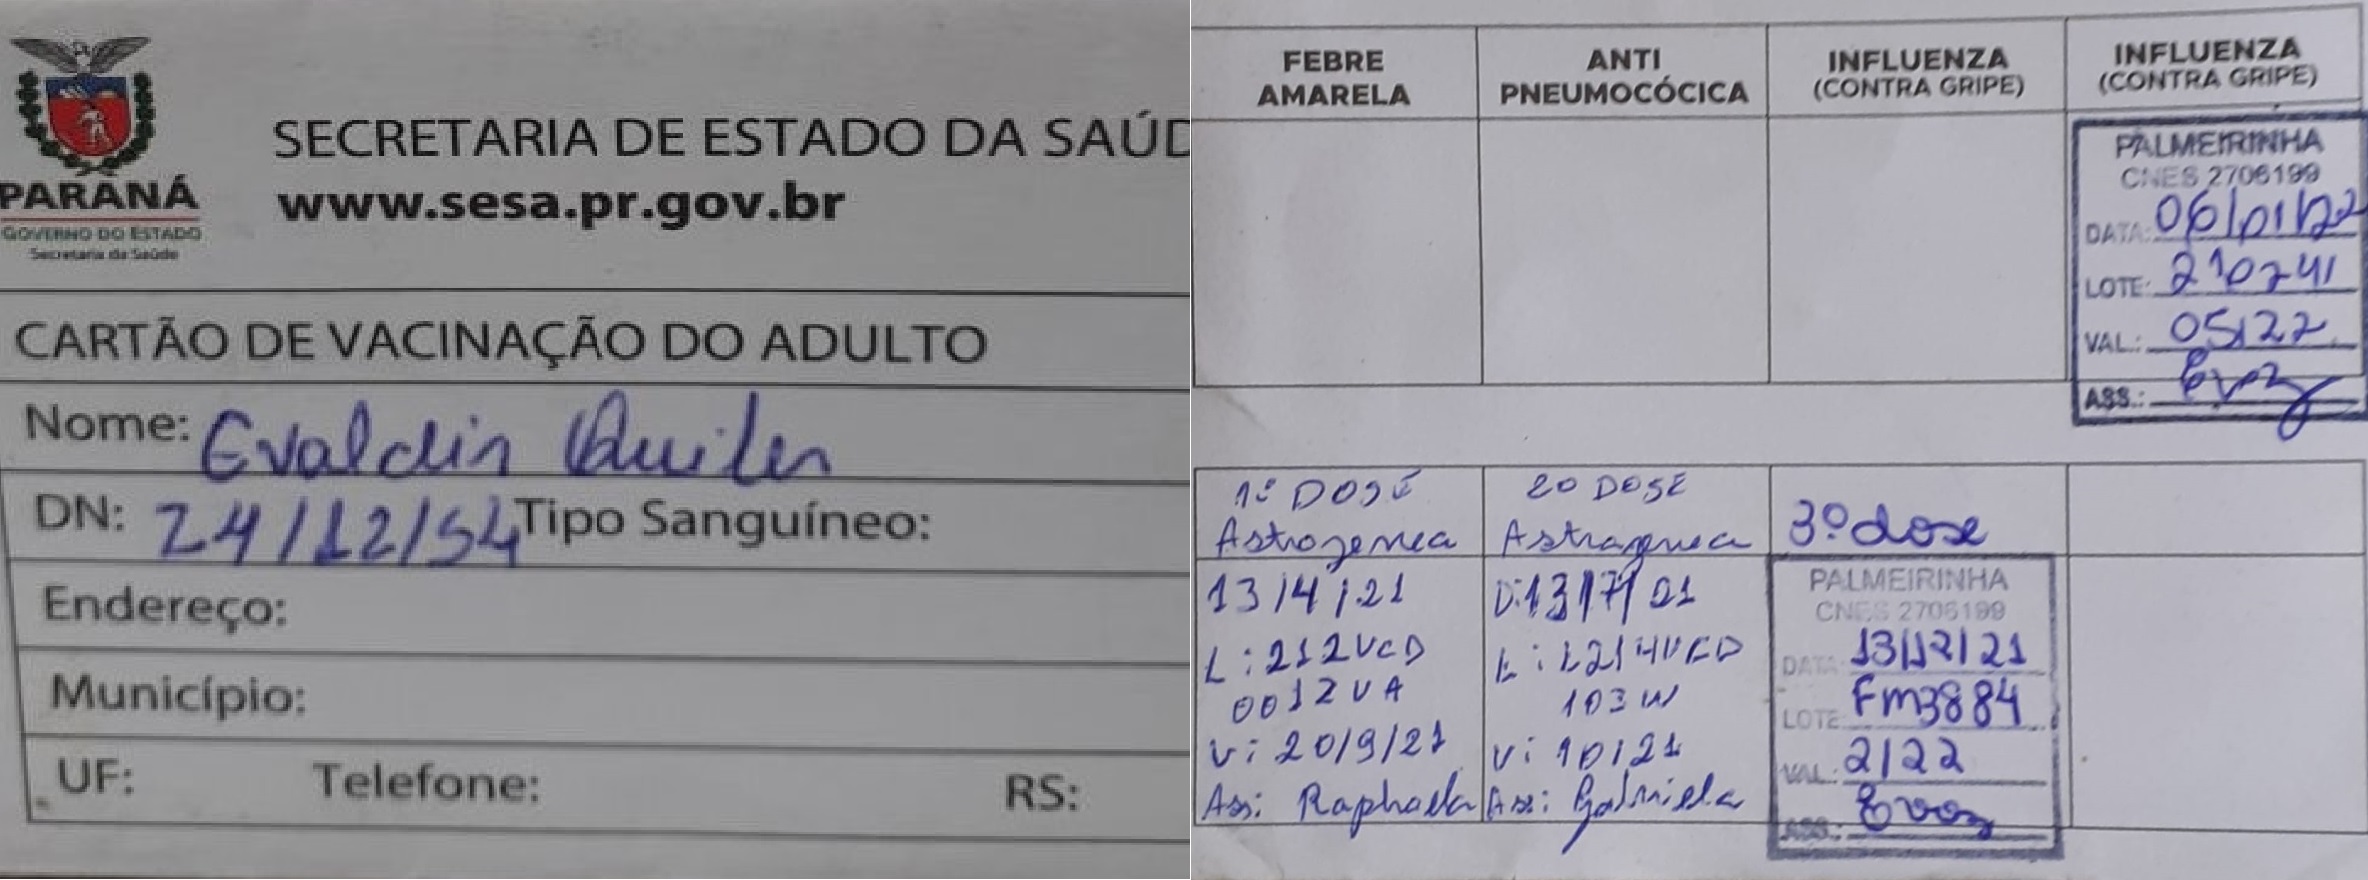 PARANÁ
GOVERNO DO ESTADO
Secretaria da Saúde
SECRETARIA DE ESTADO DA SAÚD
www.sesa.pr.gov.br
CARTÃO DE VACINAÇÃO DO ADULTO
Nome: Evaldir
DN: 24/12/54 Tipo Sanguíneo:
Endereço:
Município:
UF: Telefone: RS:
FEBRE AMARELA
ANTI PNEUMOCÓCICA
INFLUENZA (CONTRA GRIPE)
INFLUENZA (CONTRA GRIPE)
PALMEIRINHA
CNES 2706199
DATA: 06/01/22
LOTE: 210741
VAL.: 05/22
ASS.:
1ª DOSE
Astrazeneca
13/4/21
L: 212VCD
0012VA
V: 20/9/21
Ass: Raphaela
2ª DOSE
Astrazeneca
D: 13/7/21
L: 214VCD
103W
V: 10/21
Ass: Gabriela
3º dose
PALMEIRINHA
CNES 2706199
DATA 13/12/21
LOTE FM3884
VAL.: 2/22
ASS.: